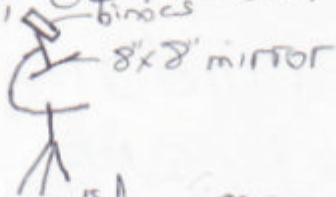 binocs
8"x8" mirror